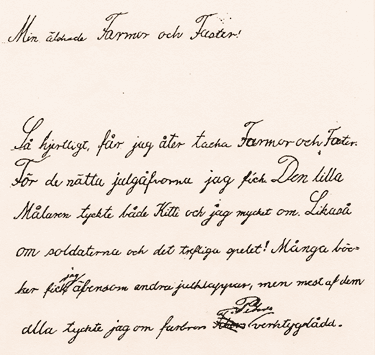 Min älskade Farmor och Faster!
Så hjertligt, får jag åter tacka Farmor och Faster.
För de nätta julgåfvorna jag fick Den lilla
Målaren tyckte både Kitti och jag mycket om. Likaså
om soldaterna och det trefliga spelet! Många böc-
ker fick jag äfvensom andra julklappar, men mest af dem
alla tyckte jag om farbror verktygslåda.